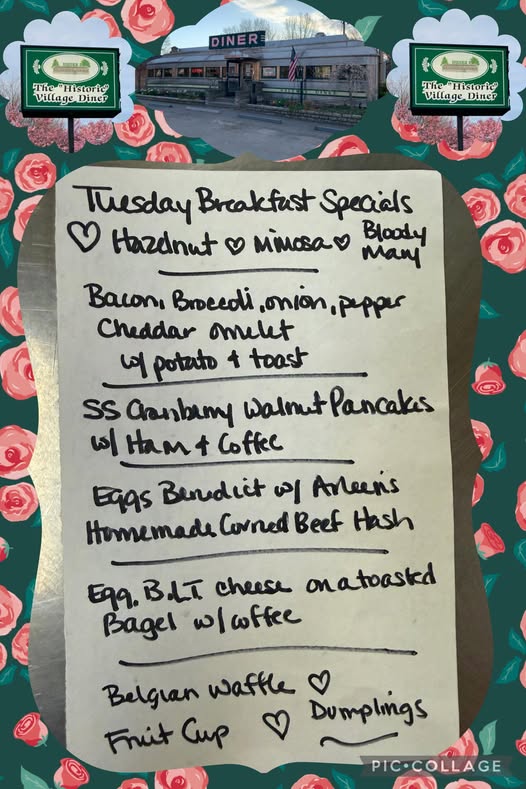 DINER
The "Historic"
Village Diner
The "Historic"
Village Diner
Tuesday Breakfast Specials
♡ Hazelnut ♡ Mimosa ♡ Bloody
Mary
Bacon, Broccoli, onion, pepper
Cheddar omelet
w/ potato + toast
SS Cranberry Walnut Pancakes
w/ Ham + Coffee
Eggs Benedict w/ Arleen's
Homemade Corned Beef Hash
Egg, B.L.T cheese on a toasted
Bagel w/ coffee
Belgian Waffle ♡
Fruit Cup ♡ Dumplings
PIC•COLLAGE